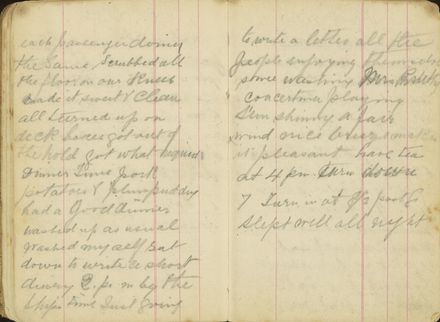 each passenger doing
the same, scrubbed all
the floor on our knees
made it sweet & clean
all turned up on
deck boxes got out of
the hold got what required
dinner time pork
potatoes & plumpudding
had a good dinner
washed up as usual
washed myself sat
down to write a short
diary 2 p.m by the
ships time just going
to write a letter all the
people enjoying themselves
some washing Mrs
concertina playing
Sun shining a fair
wind nice breeze makes
it pleasant have tea
at 4 pm. turn down
7 Turn in at ½ past 8
slept well all night